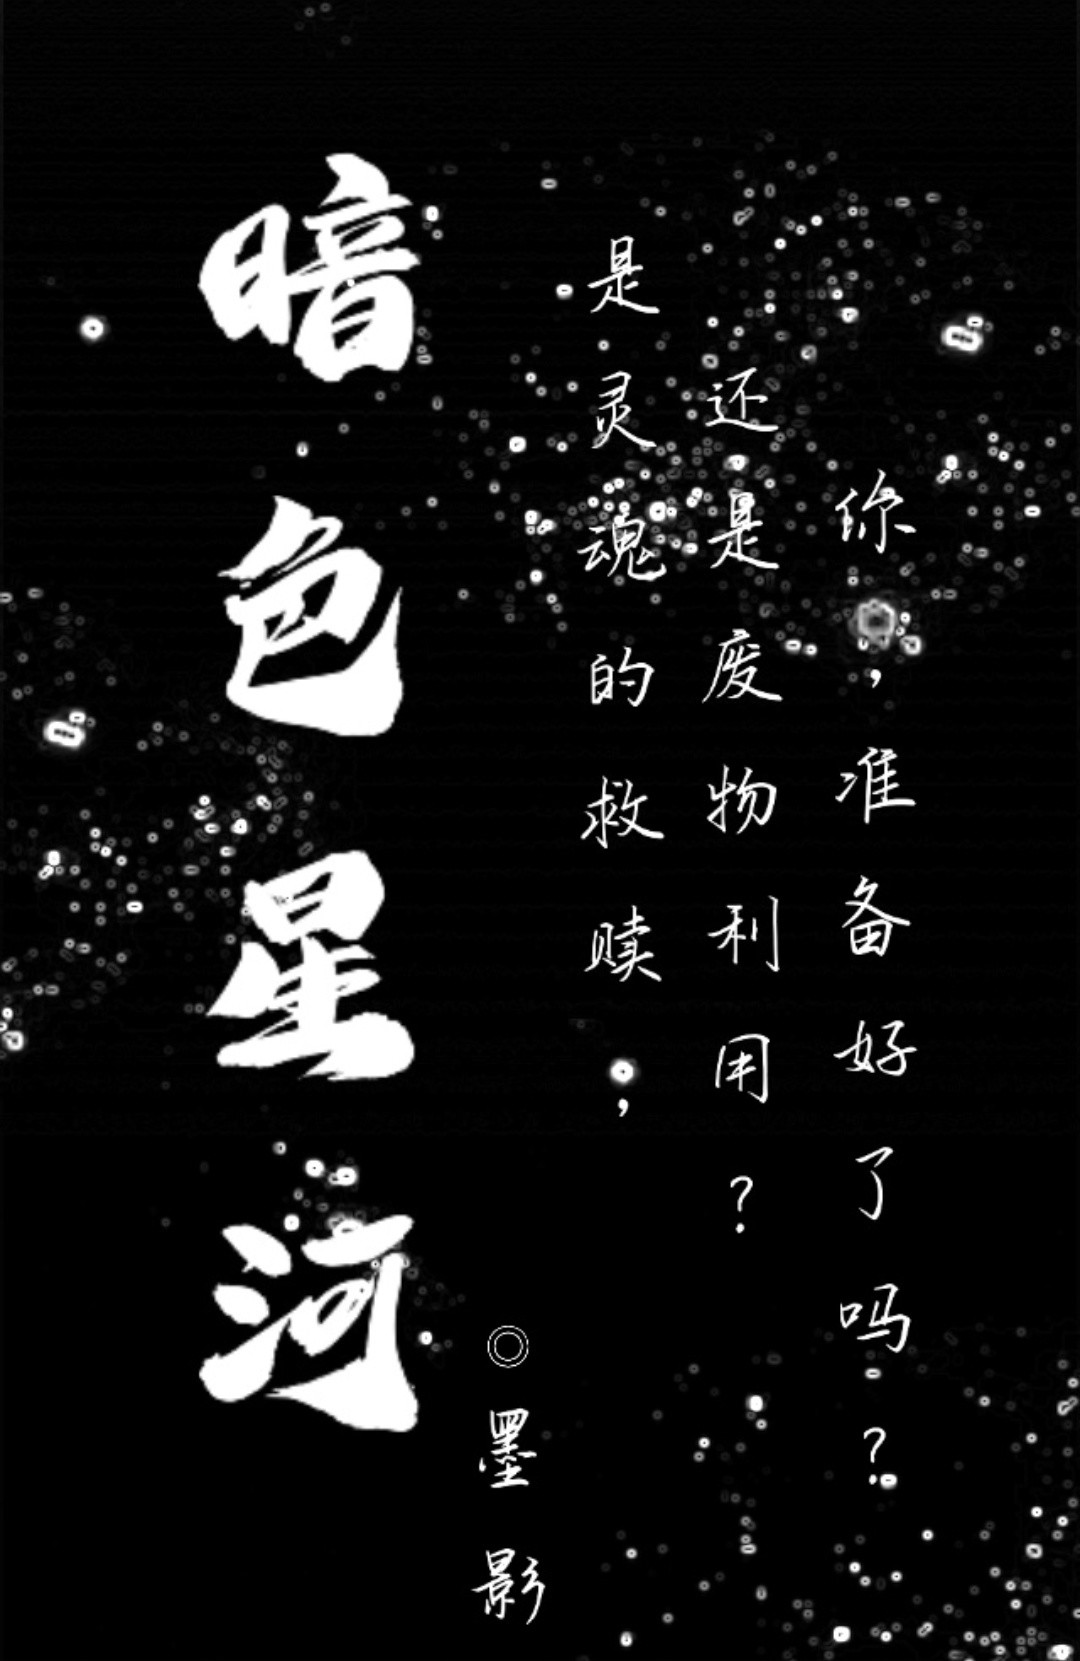 暗色星河
◎墨影
是灵魂的救赎，
还是废物利用？
你，准备好了吗？